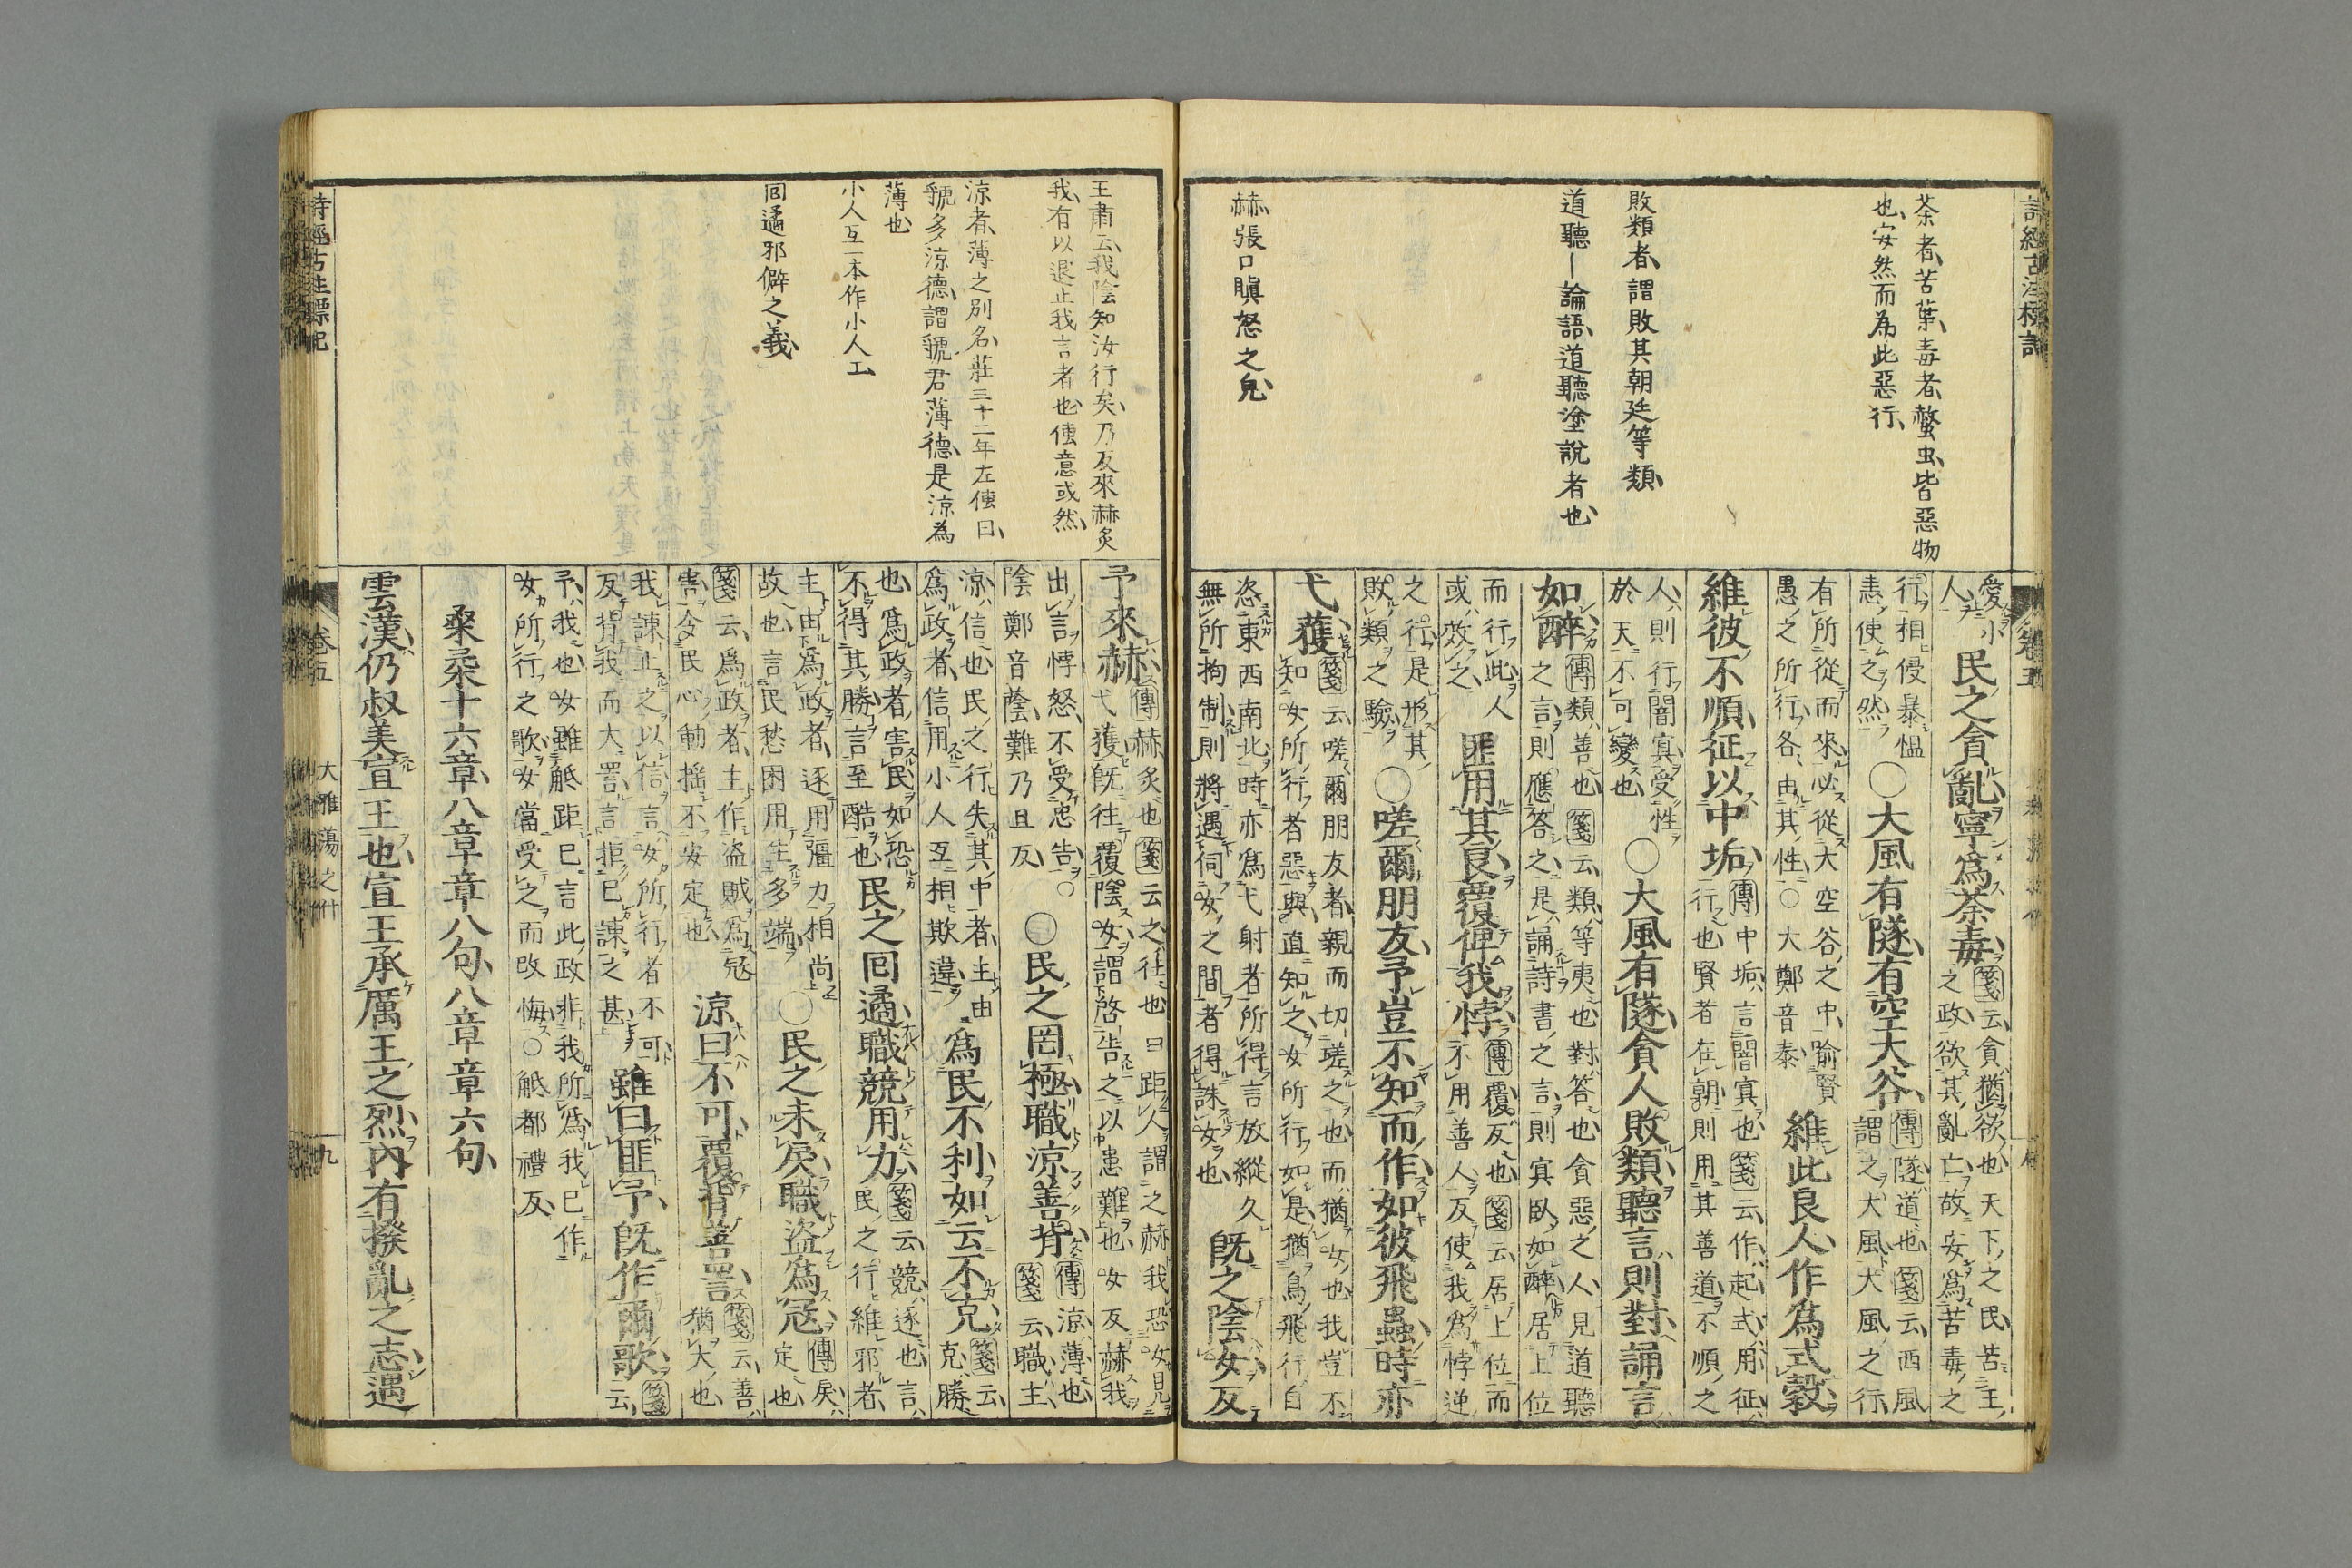 詩經古注標記
荼者、苦葉、毒者、螫虫、皆惡物
也、安然而為此惡行、
敗類者、謂敗其朝廷等類、
道聽ー論語、道聽塗說者也、
赫、張口瞋怒之皃、
卷五
愛小人民之貪亂寧爲荼毒箋云貪猶欲也天下之民苦王之政欲其亂亡故安爲苦毒之
行相侵暴慍恚使之然○大風有隧有空大谷傳隧道也箋云西風謂之大風大風之行
有所從而來必從大空谷之中喻賢愚之所行各由其性○大鄭音泰維此良人作爲式穀
維彼不順征以中垢傳中垢言闇冥也箋云作起式用征行也賢者在朝則用其善道不順之
人則行闇冥受性於天不可變也○大風有隧貪人敗類聽言則對誦言
如醉傳類善也箋云類等夷也對答也貪惡之人見道聽之言則應答之是誦詩書之言則冥臥如醉居上位
而行此人或效之匪用其良覆俾我悖傳覆反也箋云居上位而不用善人反使我爲悖逆
之行是形其敗類之驗○嗟爾朋友予豈不知而作如彼飛蟲時亦
弋獲箋云嗟爾朋友者親而切瑳之也而猶女也我豈不知女所行者惡與直知之女所行如是猶鳥飛行自
恣東西南北時亦爲弋射者所得言放縱久無所拘制則將遇伺女之間者得誅女也既之陰女反
王肅云、我陰知汝行矣、乃反來赫炙
我、有以退止我言者也、傳意或然、
涼者、薄之別名、莊三十二年左傳曰、
虢多涼德、謂虢君薄德、是涼為
薄也
小人互一本作小人工、
回遹邪僻之義、
予來赫傳赫炙也箋云之往也口距人謂之赫我恐女見弋獲既往覆陰女謂啓告之以患難也女反赫我
出言悖怒不受忠告○陰鄭音蔭難乃旦反○民之罔極職涼善背傳涼薄也箋云職主
涼信也民之行失其中者主由爲政者信用小人互相欺違爲民不利如云不克箋云克勝
也爲政者害民如恐不得其勝言至酷也民之回遹職競用力箋云競逐也言民之行維邪者
主由爲政者逐用彊力相尚故也言民愁困用生多端○民之未戾職盜爲寇傳戾定也
箋云爲政者主作盗賊爲寇害令民心動搖不安定也涼曰不可覆背善詈箋云善猶大也
我諫止之以信言女所行者不可反背我而大詈言拒已諫之甚雖曰匪予既作爾歌箋云
予我也女雖觝距已言此政非我所爲我已作女所行之歌女當受之而改悔○觝都禮反
桑柔十六章八章章八句八章章六句
雲漢仍叔美宣王也宣王承厲王之烈內有撥亂之志遇
詩經古注標記
卷五
大雅蕩之什
九